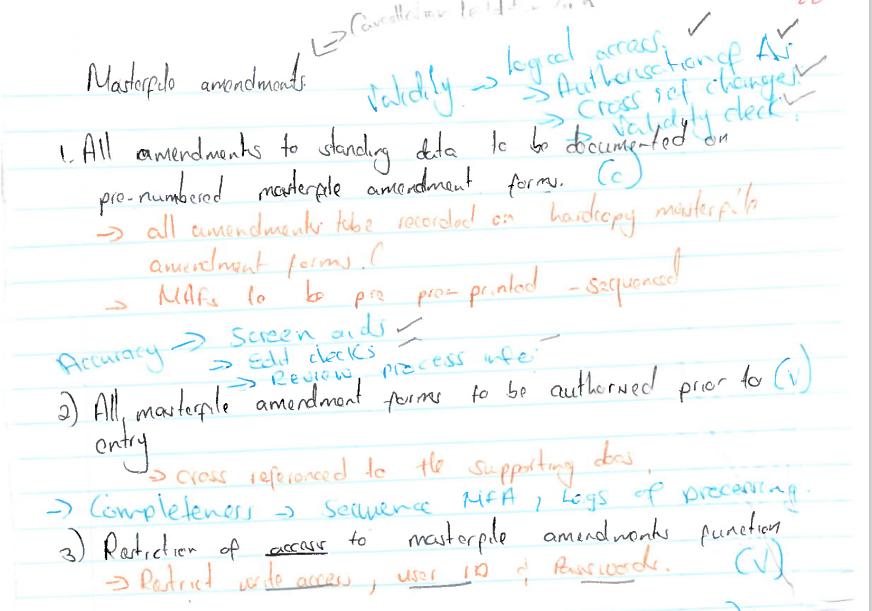 Masterfile amendments.
Validity → logical access ✓
→ Authorisation of
→ Cross ref changes ✓
→ Validity check ✓
1. All amendments to standing data to be documented on
pre-numbered masterfile amendment forms. (c)
→ all amendments to be recorded on hardcopy masterfile
amendment forms.
→ MAFs to be pre pre-printed - sequenced
Accuracy → Screen aids ✓
→ Edit checks
→ Review process
2) All masterfile amendment forms to be authorised prior to (V)
entry
→ cross referenced to the supporting docs,
→ Completeness → sequence MFA, Logs of processing.
3) Restriction of access to masterfile amendments function
→ Restrict write access, user ID & Passwords. (V)